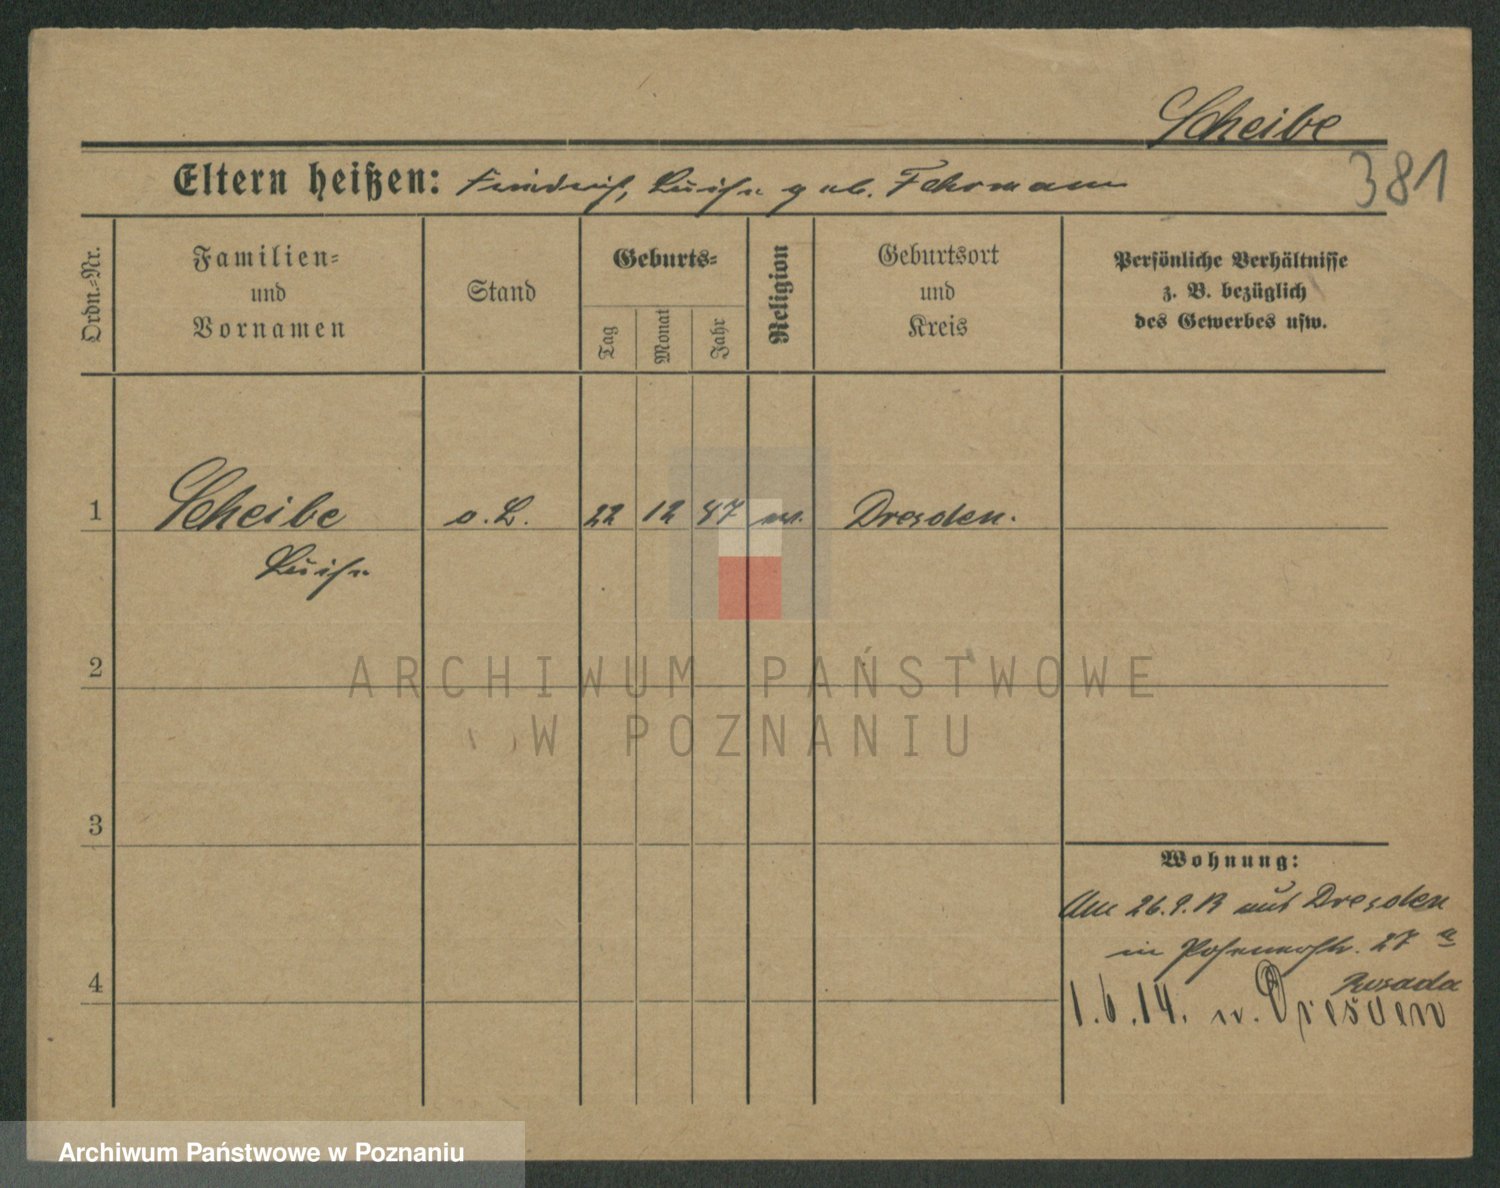 Scheibe
381
Eltern heißen: Friedrich, Luise geb. Fehrmann
Ordn.-Nr.
Familien-
und
Vornamen
Stand
Geburts-
Tag
Monat
Jahr
Religion
Geburtsort
und
Kreis
Persönliche Verhältnisse
z. B. bezüglich
des Gewerbes usw.
1 Scheibe o. L. 22 12 87 ev. Dresden.
Luise
2
3
4
Wohnung:
26.9.13 aus Dresden
in Posenerstr. 27
1.6.14. n. Dresden
ARCHIWUM PAŃSTWOWE
W POZNANIU
Archiwum Państwowe w Poznaniu